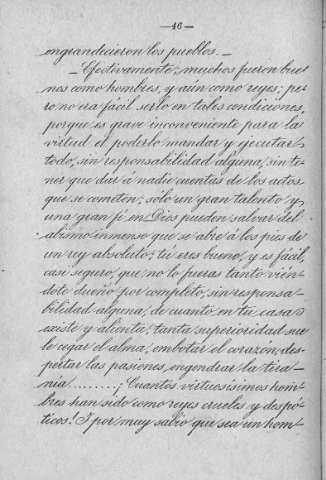 —46—
engrandecieron los pueblos.—
—Efectivamente; muchos fueron bue
nos como hombres, y aún como reyes; pe-
ro no era fácil serlo en tales condiciones,
porque es grave inconveniente para la
virtud el poderlo mandar y ejecutar
todo, sin responsabilidad alguna, sin te-
ner que dar á nadie cuentas de los actos
que se cometen; sólo un gran talento y
una gran fé en Dios pueden salvar del
abismo inmenso que se abre á los pies de
un rey absoluto; tú eres bueno, y es fácil,
casi seguro, que no lo fueras tanto vién-
dote dueño por completo, sin responsa-
bilidad alguna, de cuanto en tu casa
existe y alienta; tanta superioridad sue
le cegar el alma, embotar el corazón, des-
pertar las pasiones, engendrar la tira-
nía........¡Cuantos virtuosísimos hom-
bres han sido como reyes crueles y despó-
ticos! Y por muy sabio que sea un hom-